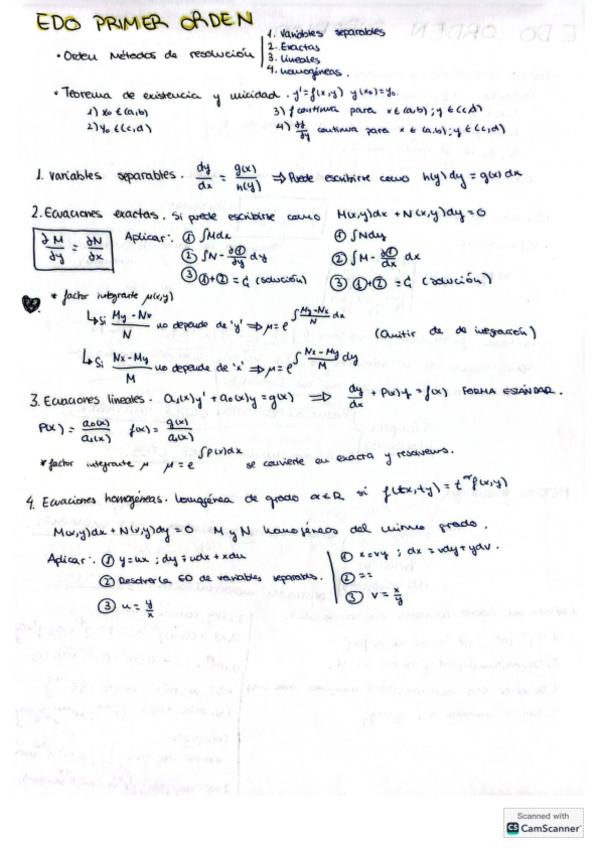 EDO PRIMER ORDEN
• Orden Métodos de resolución
1. Variables separables
2. Exactas
3. lineales
4. homogéneas.
• Teorema de existencia y unicidad. y'=f(x,y) y(x₀)=y₀
1) x₀ ∈ (a,b)
3) f continua para x∈(a,b); y∈(c,d)
2) y₀ ∈ (c,d)
4) ∂f/∂y continua para x ∈ (a,b); y ∈ (c,d)
1. Variables separables. dy/dx = g(x)/h(y) ⇒ Puede escribirse como h(y)dy = g(x)dx
2. Ecuaciones exactas. Si puede escribirse como M(x,y)dx + N(x,y)dy=0
∂M/∂y = ∂N/∂x
Aplicar: ① ∫Mdx
② ∫N - ∂①/∂y dy
③ ①+② = C₁ (solución)
① ∫Ndy
② ∫M - ∂①/∂x dx
③ ①+② = C₁ (solución)
* factor integrante μ(x,y)
↳ Si (My - Nx)/N no depende de 'y' ⇒ μ = e^∫(My-Nx)/N dx
(Omitir de integración)
↳ Si (Nx - My)/M no depende de 'x' ⇒ μ = e^∫(Nx-My)/M dy
3. Ecuaciones lineales. a₁(x)y' + a₀(x)y = g(x) ⇒ dy/dx + P(x)y = f(x) FORMA ESTÁNDAR.
P(x) = a₀(x)/a₁(x) f(x) = g(x)/a₁(x)
* factor integrante μ μ = e^∫P(x)dx se convierte en exacta y resolvemos.
4. Ecuaciones homogéneas. homogénea de grado α∈R si f(tx,ty) = t^α f(x,y)
M(x,y)dx + N(x,y)dy = 0 M y N homogéneas del mismo grado.
Aplicar: ① y=ux ; dy = udx + xdu
② Resolver la ED de variables separables.
③ u = y/x
① x=vy ; dx = vdy + ydv.
② ==
③ v = x/y
Scanned with
CS CamScanner